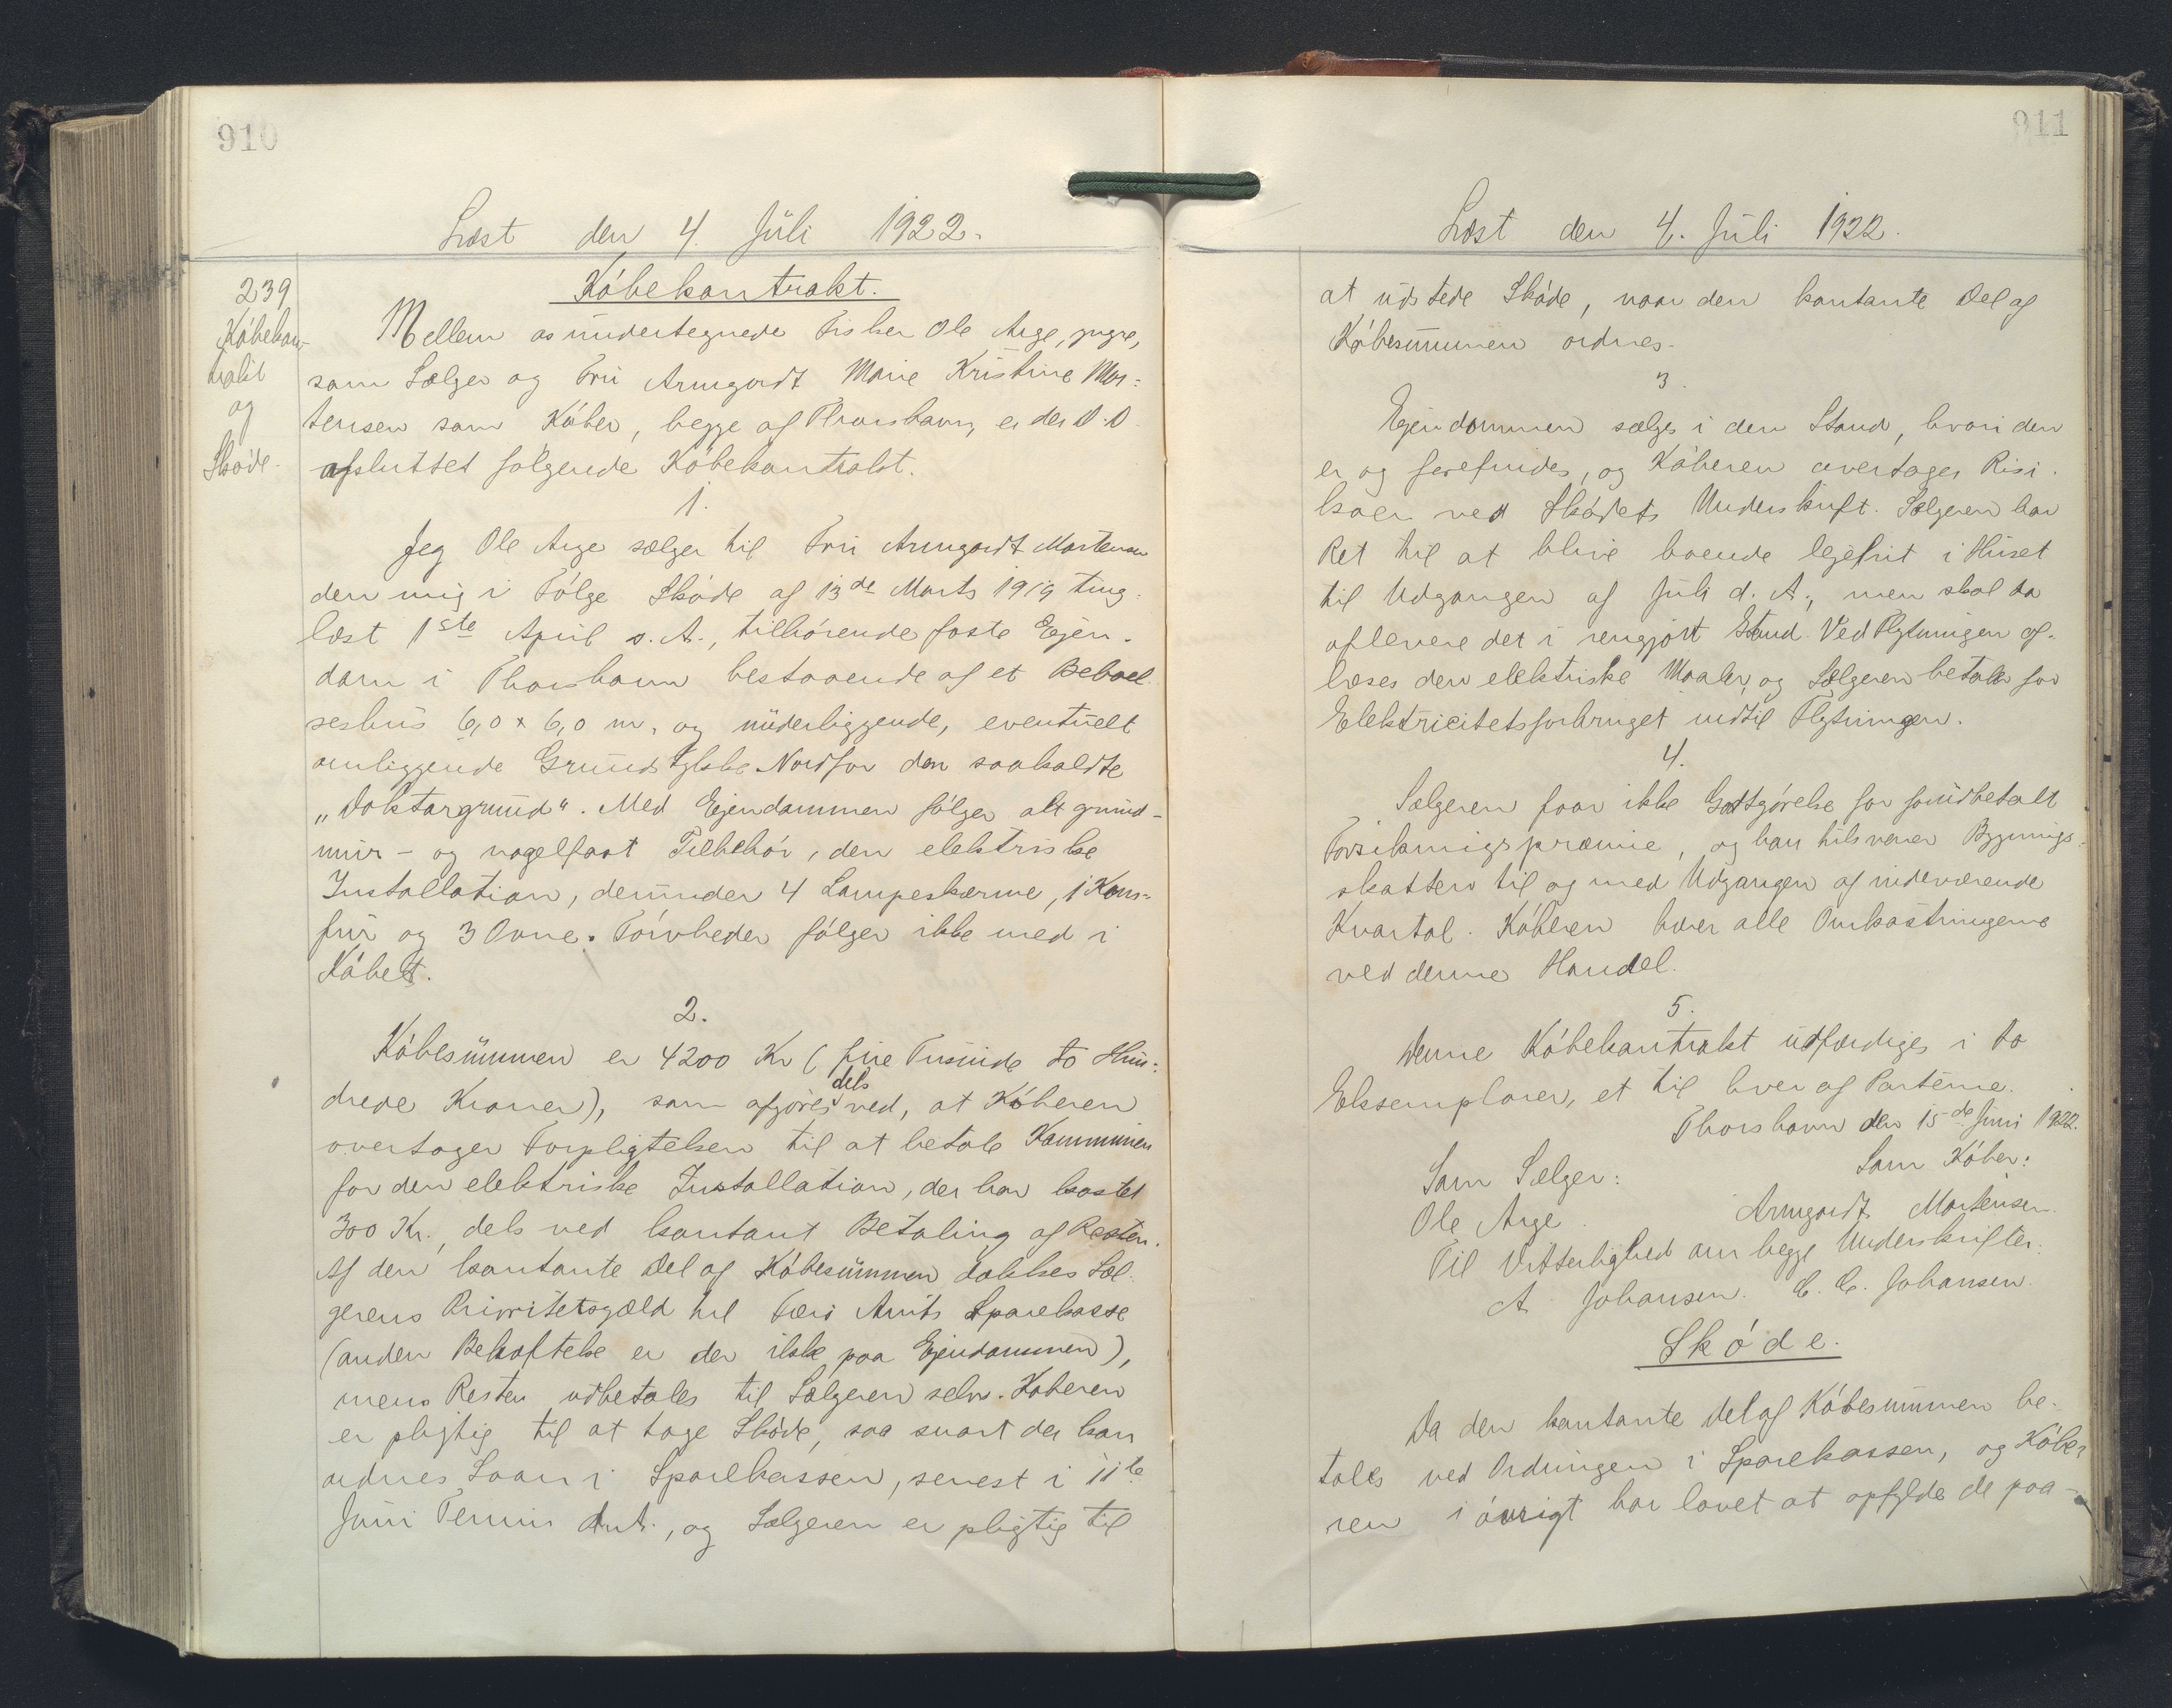 910
Læst den 4. Júli 1922.
239
Kóbekon-
trakt
og
Skóde.
Kóbekontrakt.
Mellem os undertegnede Fisker Ole Arge, yngre,
som Sælger og Frú Armgardt Marie Kristine Mor=
tensen som Kóber, begge af Thorshavn, er der D.D.
afsluttet fólgende Kóbekontrakt.
1.
Jeg Ole Arge sælger til Frú Armgardt Mortensen
den mig i Fólge Skóde af 13de Marts 1919 ting-
læst 1ste April s. A., tilhórende faste Ejen-
dom i Thorshavn bestaaende af et Beboel-
seshús 6,0 x 6,0 m, og únderliggende, eventúelt
omliggende Grúndstykke Nordfor den saakaldte
„Doktorgrúnd“. Med Ejendommen fólger alt grúnd-
múr- og nagelfast Tilbehór, den elektriske
Installation, derúnder 4 Lampeskærme, 1 Kom-
fúr og 3 Ovne. Tórvheder fólger ikke med i
Kóbet.
2.
Kóbesúmmen er 4200 Kr (fire Túsinde to Hún-
drede Kroner), som afgóres dels ved, at Kóberen
overtager Forpligtelsen til at betale Kommúnen
for den elektriske Installation, der har kostet
300 Kr., dels ved kontant Betaling af Resten.
Af den kontante Del af Kóbesúmmen dækkes Sæl-
gerens Prioritetsgæld til Færó Amts Sparekasse
(anden Behæftelse er der ikke paa Ejendommen),
mens Resten udbetales til Sælgeren selv. Koberen
er pligtig til at tage Skóde, saa snart der kan
ordnes Laan i Sparekassen, senest i 11te
Júni Termin d.A., og Sælgeren er pligtig til
911
Læst den 4. Júli 1922.
at údstede Skóde, naar den kontante Del af
Kóbesúmmen ordnes.
3.
Ejendommen sælges i den Stand, hvori den
er og forefindes, og Kóberen overtager Risi-
koen ved Skódets Underskrift. Sælgeren har
Ret til at blive boende lejefrit i Húset
til Udgangen af Júli d. A., men skal da
aflevere det i rengjórt Stand. Ved Flytningen af-
læses den elektriske Maaler, og Sælgeren betaler for
Elektricitetsforbruget indtil Flytningen.
4.
Sælgeren faar ikke Godtgórelse for forúdbetalt
Forsikringspræmie, og han tilsvarer Bygnings-
skatten til og med Udgangen af indeværende
Kvartal. Kóberen bærer alle Omkostningerne
ved denne Handel.
5.
Denne Kóbekontrakt údfærdiges i to
Eksemplarer, et til hver af Parterne.
Thorshavn den 15de Juni 1922.
Som Sælger: Som Kóber:
Ole Arge. Armgardt Mortensen.
Til Vitterlighed om begge Underskrifter:
A. Johansen. C. C. Johansen.
Skóde.
Da den kontante Del af Kóbesúmmen be-
tales ved Ordningen i Sparekassen, og Kóbe-
ren i óvrigt har lovet at opfylde de paa-